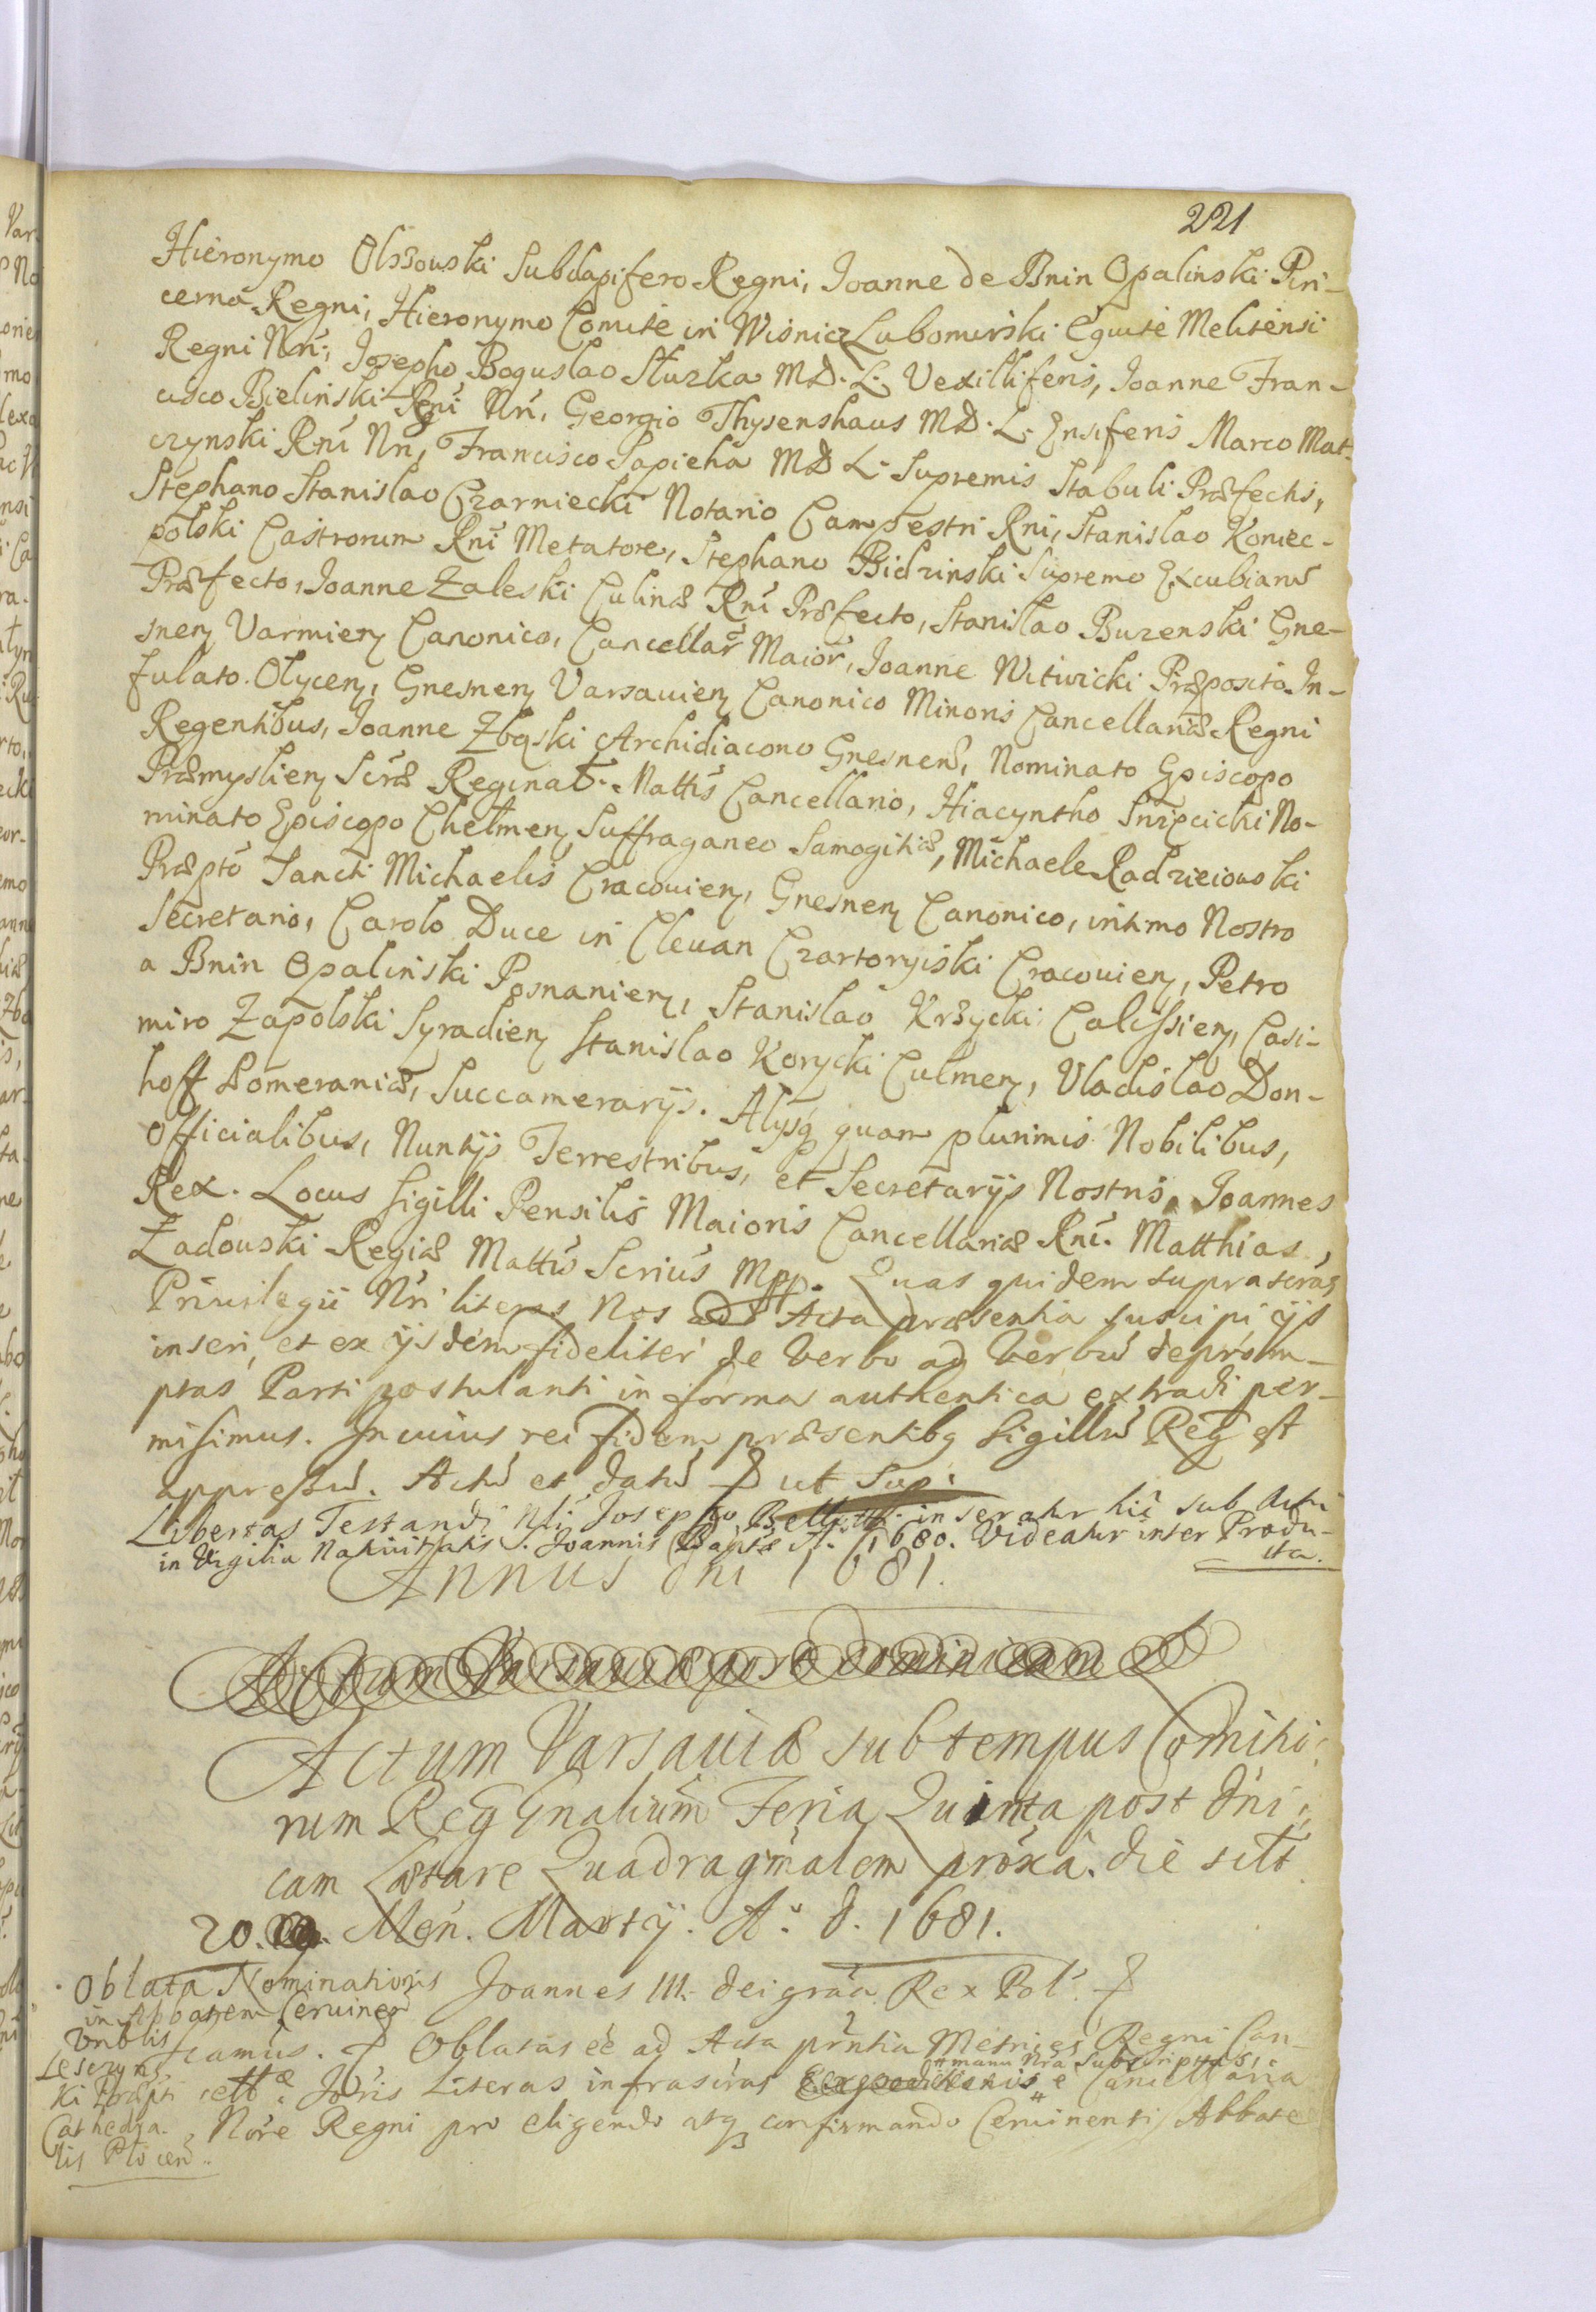 221
Hieronymo Olszowski Subdapifero Regni, Joanne de Bnin Opalinski Pin-
cerna Regni, Hieronymo Comite in Wisnicz Lubomirski Equite Melitensi
Regni Nri, Josepho Boguslao Sluzka M.D.L. Vexilliferis, Joanne Fran-
cisco Bielinski Rni Nri, Georgio Thysenshaus M.D.L. Ensiferis Marco Mat-
czynski Rni Nri, Francisco Sapieha M D L. Supremis Stabuli Præfectis,
Stephano Stanislao Czarniecki Notario Campestri Rni, Stanislao Koniec-
polski Castrorum Rni Metatore, Stephano Bidzinski Supremo Excubiarū
Præfecto, Joanne Zaleski Culinæ Rni Præfecto, Stanislao Buzenski Gne-
snen Varmien Canonico, Cancellar Maior, Joanne Witwicki Præposito In-
fulato Olycen, Gnesnen Varsavien Canonico Minoris Cancellariæ Regni
Regentibus, Joanne Zbąski Archidiacono Gnesnen, Nominato Episcopo
Præmyslien Scræ Reginał. Mattis Cancellario, Hiacyntho Snipcicki No-
minato Episcopo Chelmen Suffraganeo Samogitiæ, Michaele Radzieiowski
Præpto Sancti Michaelis Cracovien, Gnesnen Canonico, intimo Nostro
Secretario, Carolo Duce in Clevan Czartoryiski Cracovien, Petro
a Bnin Opalinski Posnanien, Stanislao Krzycki Calissien, Casi-
miro Zapolski Syradien Stanislao Korycki Culmen, Vladislao Don-
hoff Pomeraniæ, Succamerarijs. Alijsq quam plurimis Nobilibus,
Officialibus, Nuntijs Terrestribus, et Secretarijs Nostris. Joannes
Rex. Locus Sigilli Pensilis Maioris Cancellariæ Rni. Matthias
Zadowski Regiæ Mattis Scrius Mpp. Quas quidem suprascras
Privilegii Nri literas Nos ad Acta præsentia suscipi ijs
inseri, et ex ijsdem fideliter de verbo ad verbū deprom-
ptas Parti postulanti in forma authentica extradi per-
misimus. In cuius rei fidem præsentibq Sigillū Reg est
appressū. Actū et datū ut sup.
Libertas Testandi Nli Josepho in seratur hic sub Actu
in Vigilia Nativitatis S. Joannis Bapte A. 1680. Videatur inter Produ-
cta.
Annus Dni 1681.
Actum Varsaviæ post Dominicam
Actum Varsaviæ sub tempus Comitio-
rum Reg Gnalium Feria Quinta post Dni-
cam Lætare Quadragmalem proxa. die scilt
20. Men. Martij. Aº. D. 1681.
Oblata Nominationis
in Abbatem Cervinen
Vnblis
Leszczyns
ki Præpti
Cathedra-
lis Plocen.
Joannes III. Dei gra Rex Pol.
ficamus. Oblatas eē ad Acta prntia Metrices Regni Can-
manu Nra Subscriptas
cellæ Joris Literas infrascras e Cancellaria
Nore Regni pro eligendo atq confirmando Cervinenti Abbate